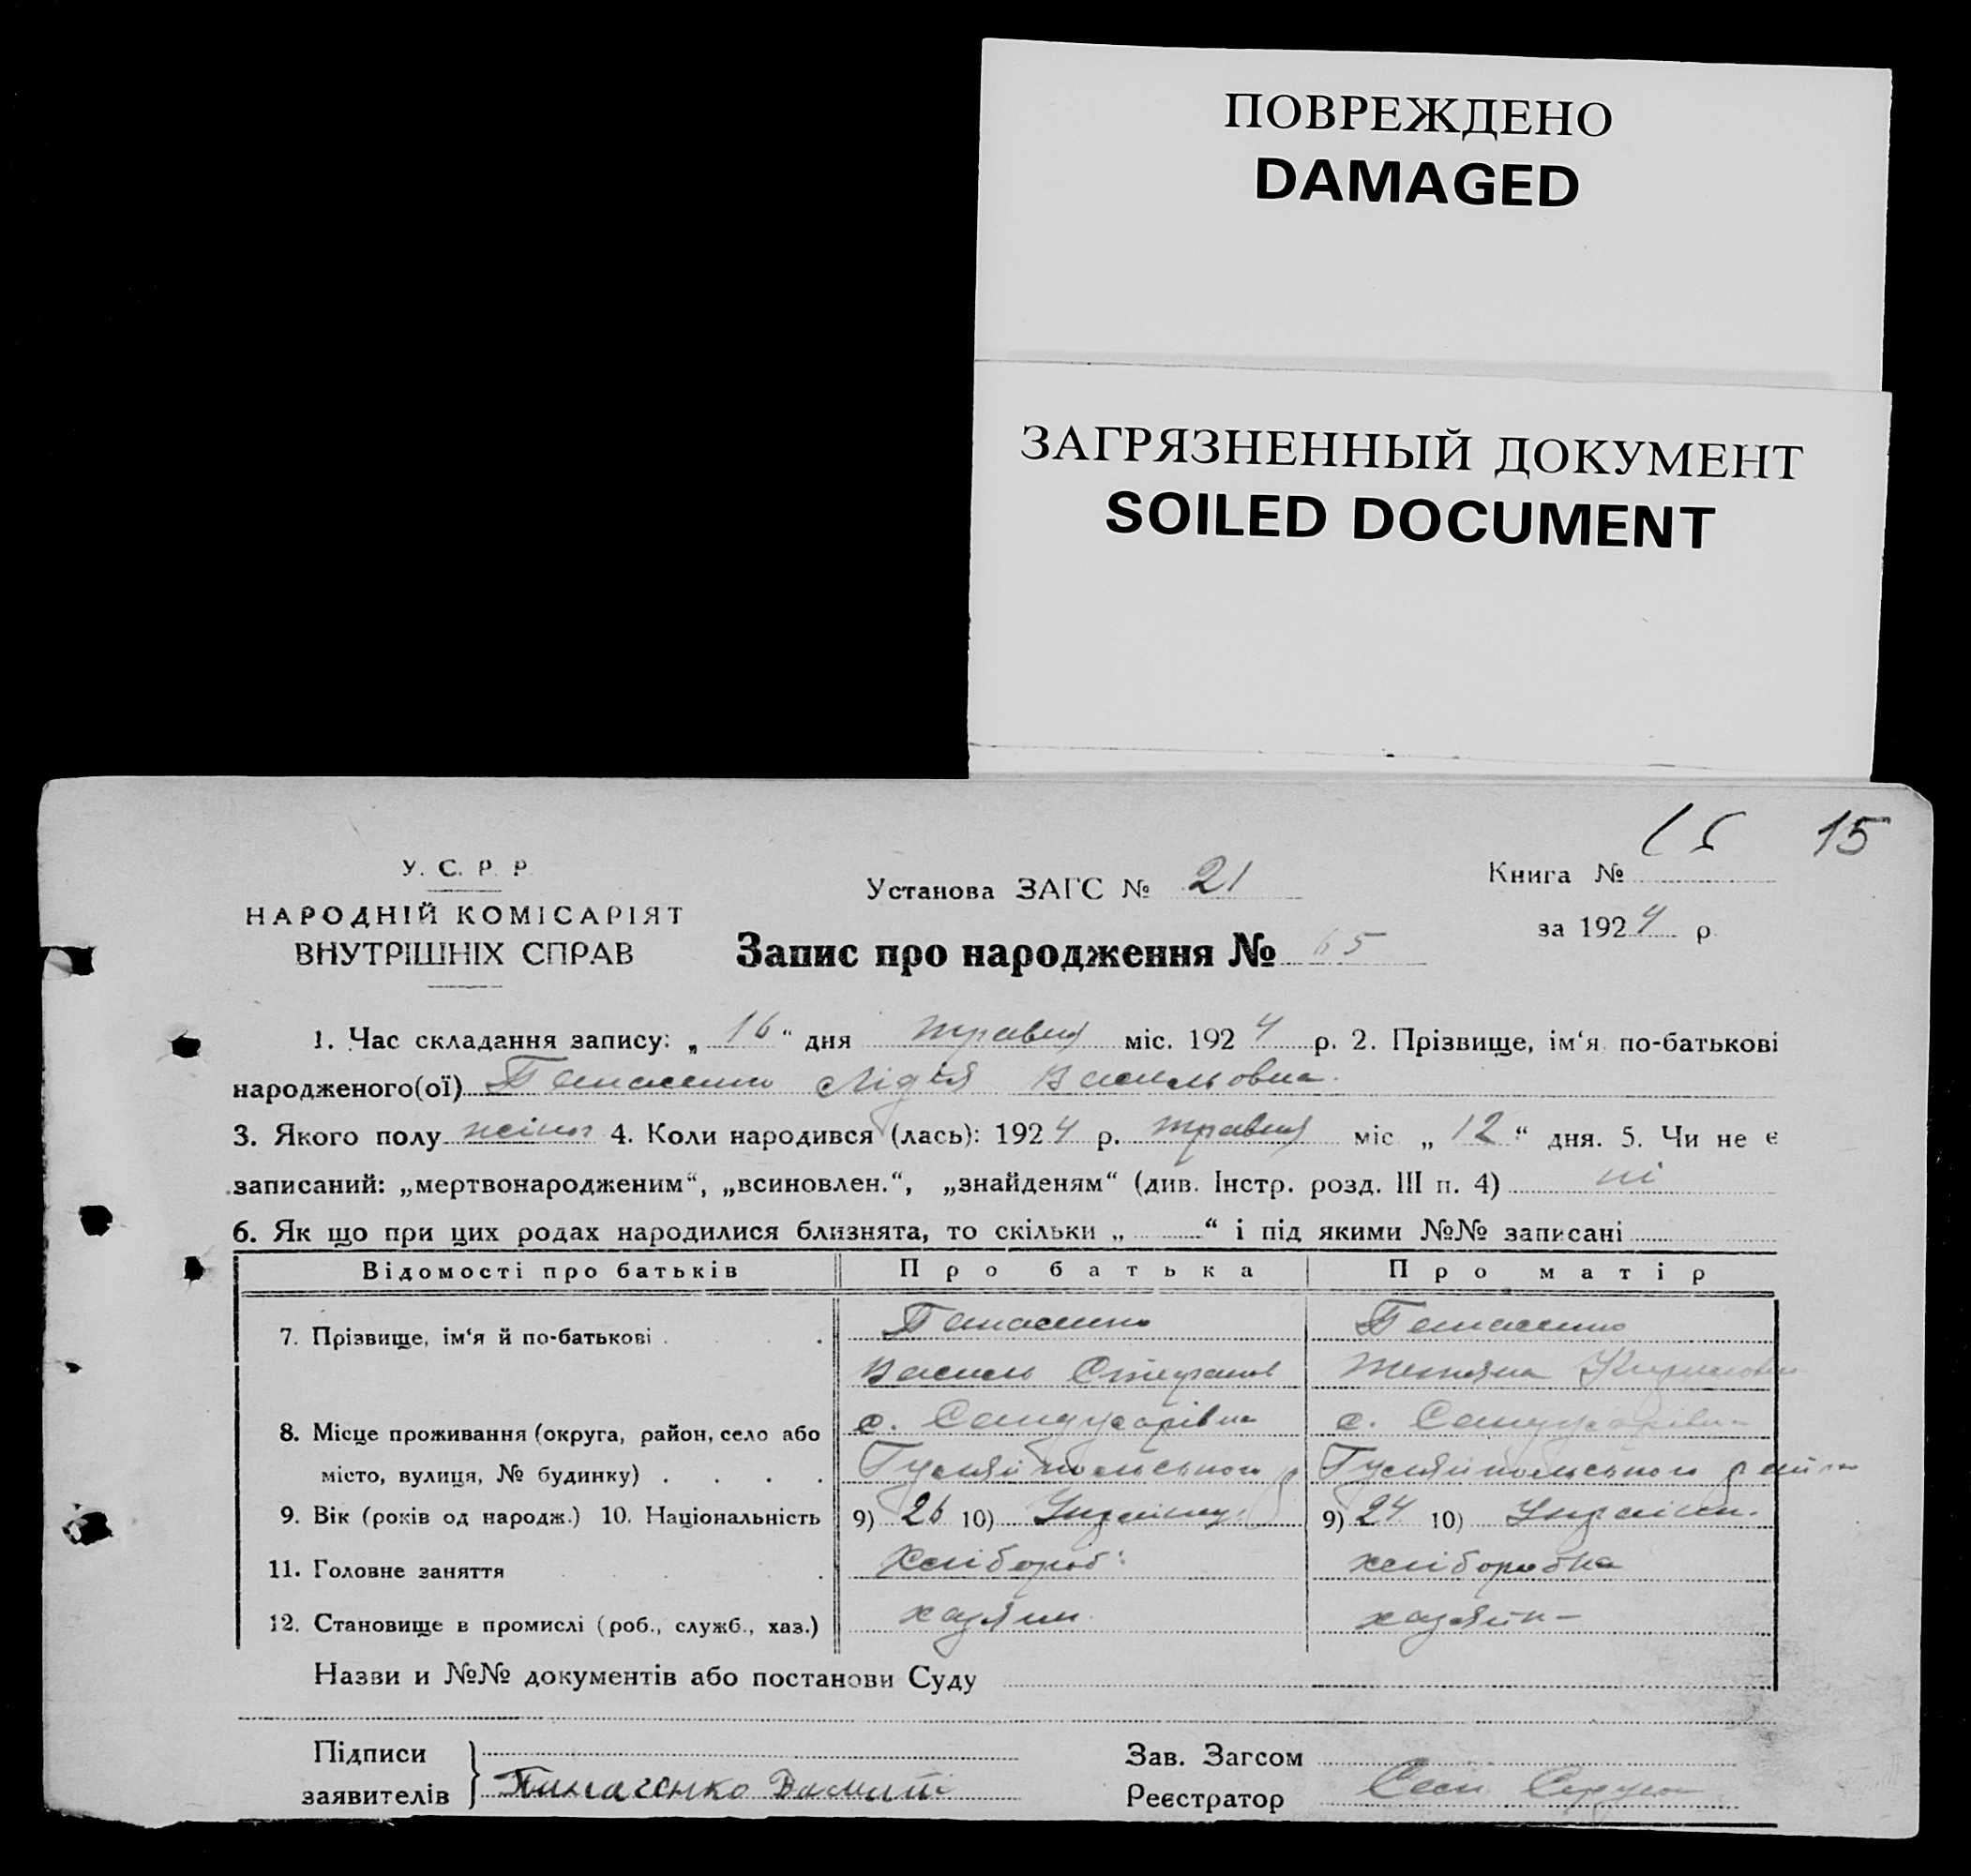 ПОВРЕЖДЕНО
DAMAGED
ЗАГРЯЗНЕННЫЙ ДОКУМЕНТ
SOILED DOCUMENT
15 15
У. С. Р. Р.
Установа ЗАГС № 21
Книга №
НАРОДНІЙ КОМІСАРІЯТ
за 1924 р.
ВНУТРІШНІХ СПРАВ
Запис про народження № 65
1. Час складання запису: „ 16 “ дня травня міс. 1924 р. 2. Прізвище, ім‘я по-батькові
народженого(ої) Лідія Васильовна.
3. Якого полу жіноч 4. Коли народився (лась): 1924 р. травня міс „ 12 “ дня. 5. Чи не є
записаний: „мертвонародженим“, „всиновлен.“, „знайденям“ (див. Інстр. розд. III п. 4) ні
6. Як що при цих родах народилися близнята, то скільки „ “ і під якими №№ записані
Відомості про батьків Про батька Про матір
7. Прізвище, ім‘я й по-батькові .
Василь Степанов
8. Місце проживання (округа, район, село або с. с.
місто, вулиця, № будинку) . . . . Гуляйпольського р Гуляйпольського район
9. Вік (років од народж.) 10. Національність 9) 26 10) Україн. 9) 24 10) Україн.
11. Головне заняття . хлібороб. хліборобка
12. Становище в промислі (роб., служб., хаз.) хазяин хазяйн
Назви и №№ документів або постанови Суду
Підписи
Зав. Загсом
заявителів
Реєстратор